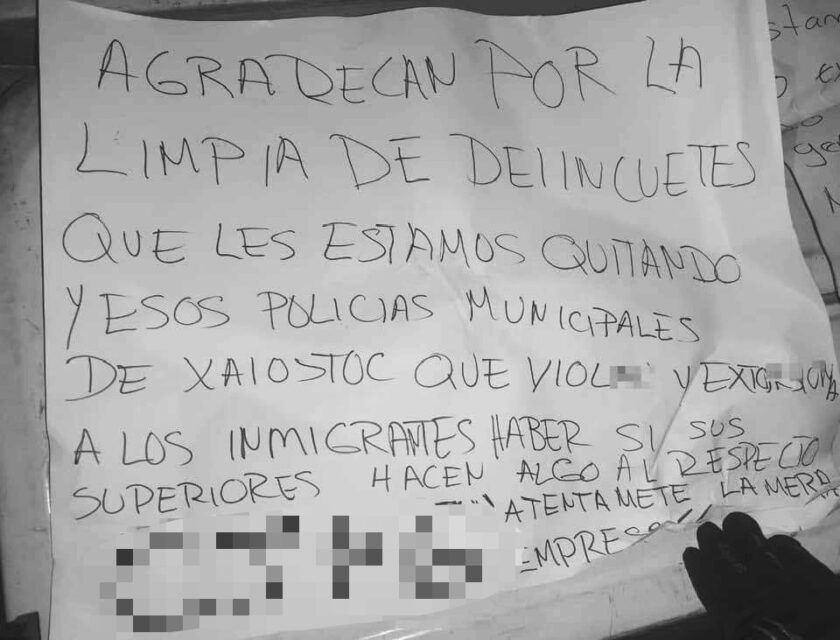 AGRADECAN POR LA
LIMPIA DE DELINCUETES
QUE LES ESTAMOS QUITANDO
Y ESOS POLICIAS MUNICIPALES
DE XAIOSTOC QUE Y
A LOS INMIGRANTES HABER SI SUS
SUPERIORES HACEN ALGO AL RESPECTO
ATENTAMETE LA